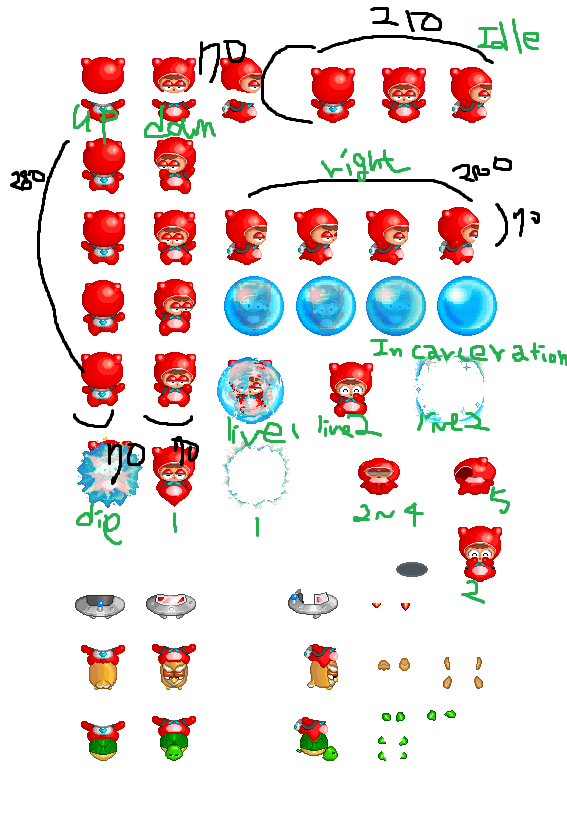 210
Idle
70
up down
right
280
280
70
Incarceration
live1 live2 live2
70 70
die 1 1 2~4 5
2